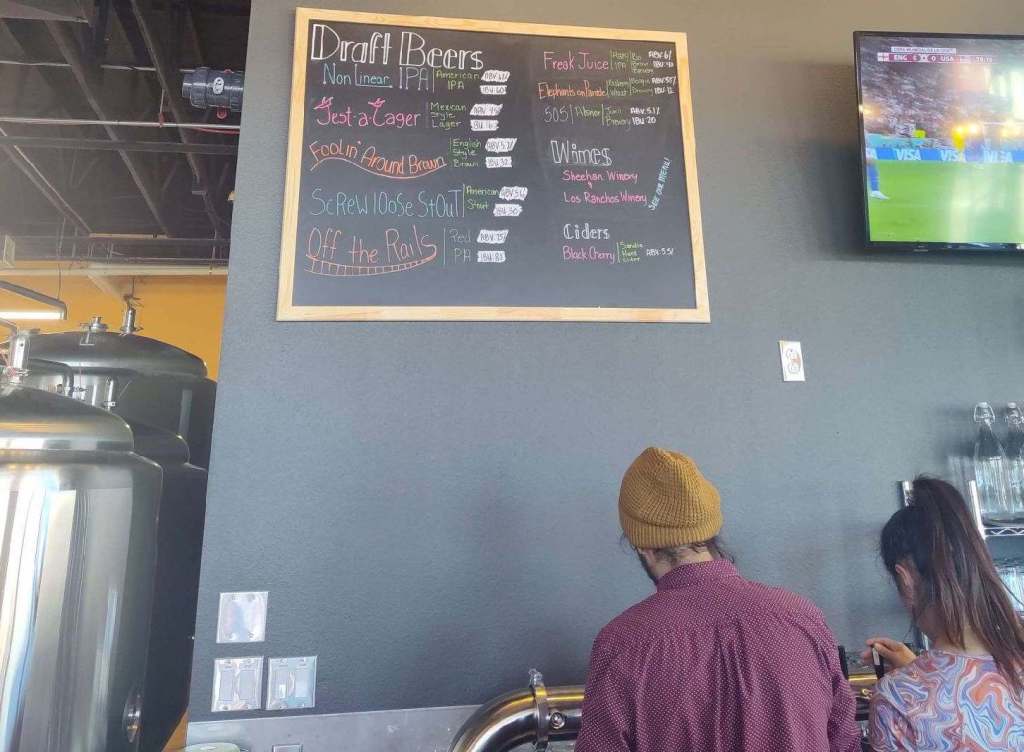 Draft Beers
Non Linear IPA American IPA ABV 6.1 IBU 60
Jest-a-Lager Mexican Style Lager IBU 16
Foolin' Around Brown English Style Brown ABV 5.2 IBU 32
Screw loose Stout American Stout IBU 30
Off the Rails Red IPA ABV 7.5 IBU 81
Freak Juice ABV
Elephants on Parade IBU 12
505 Pilsner Brewery ABV 5.1% IBU 20
Wines
Sheehan Winery
Los Ranchos Winery
See our menu!
Ciders
Black Cherry Cider ABV 5.5%
ENG 0 0 USA
VISA VISA VISA